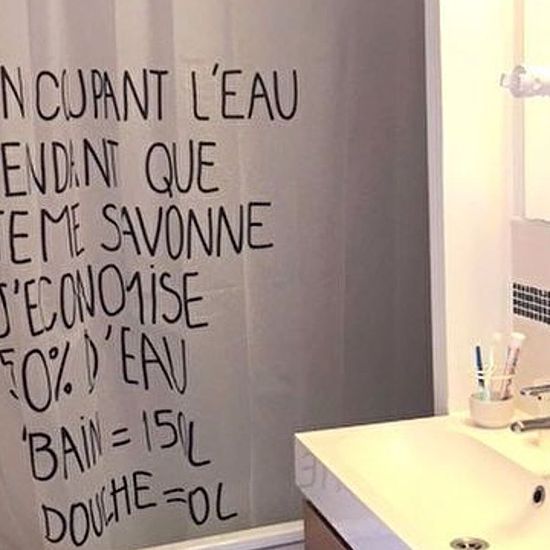 N COUPANT L'EAU
ENDANT QUE
JE ME SAVONNE
J'ECONOMISE
50% D'EAU
BAIN = 150L
DOUCHE = 0L